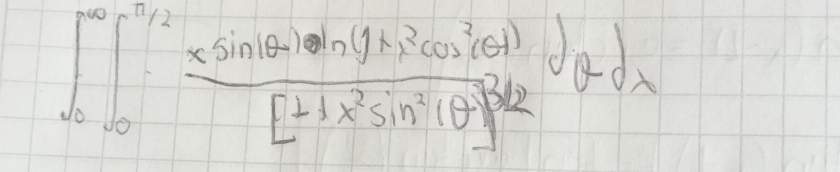 ∫₀^∞ ∫₀^{π/2} \frac{x sin(θ) ln(1+x²cos²(θ))}{[1+x²sin²(θ)]^{3/2}} dθ dx